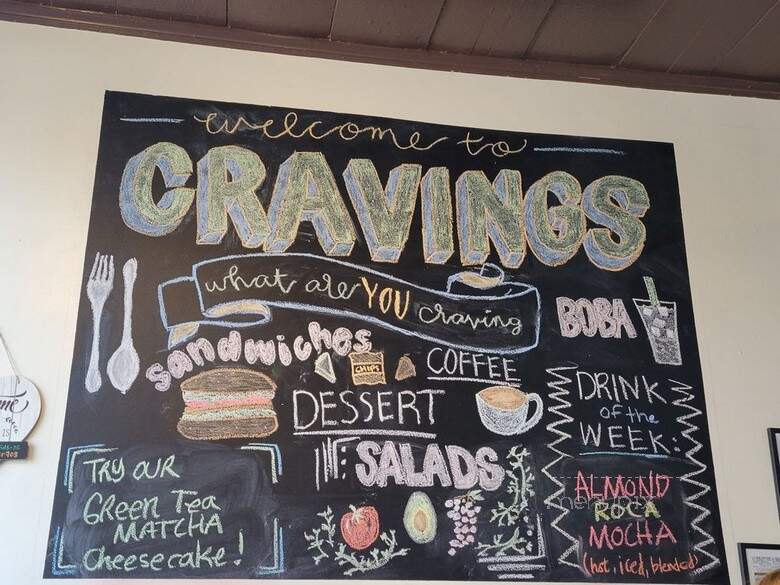 welcome to
CRAVINGS
what are YOU craving
Sandwiches
CHIPS
COFFEE
BOBA
DESSERT
SALADS
DRINK
of the
WEEK:
ALMOND
ROCA
MOCHA
(hot, iced, blended)
TRY OUR
GREEN TEA
MATCHA
Cheesecake!